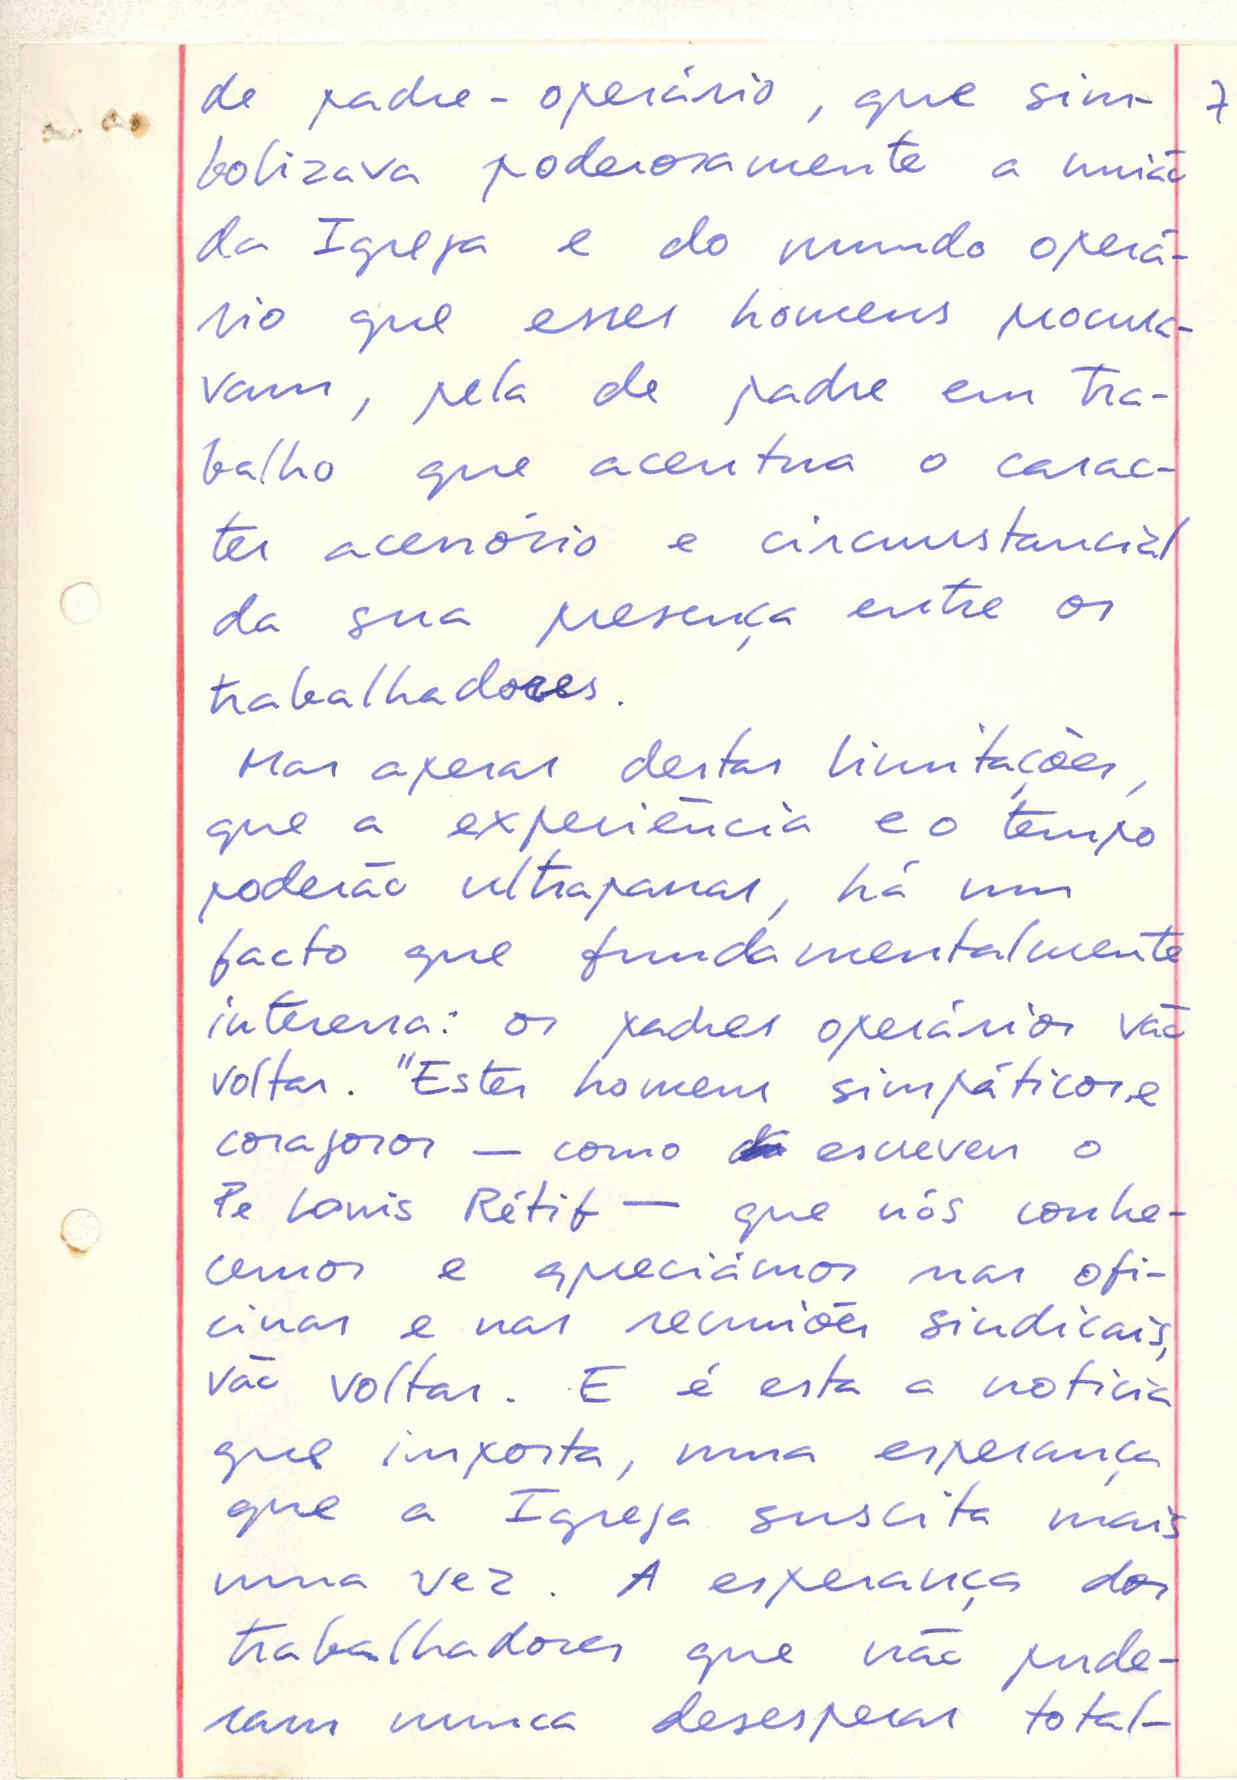 7
de padre-operário, que sim-
bolizava poderosamente a união
da Igreja e do mundo operá-
rio que esses homens procura-
vam, pela de padre em tra-
balho que acentua o carac-
ter acessório e circunstancial
da sua presença entre os
trabalhadores.
Mas apesar destas limitações,
que a experiência e o tempo
poderão ultrapassar, há um
facto que fundamentalmente
interessa: os padres operários vão
voltar. "Estes homens simpáticos e
corajosos — como escreveu o
Pe Louis Rétif — que nós conhe-
cemos e apreciámos nas ofi-
cinas e nas reuniões sindicais,
vão voltar. E é esta a noticia
que importa, uma esperança
que a Igreja suscita mais
uma vez. A esperança dos
trabalhadores que não pude-
ram nunca desesperar total-